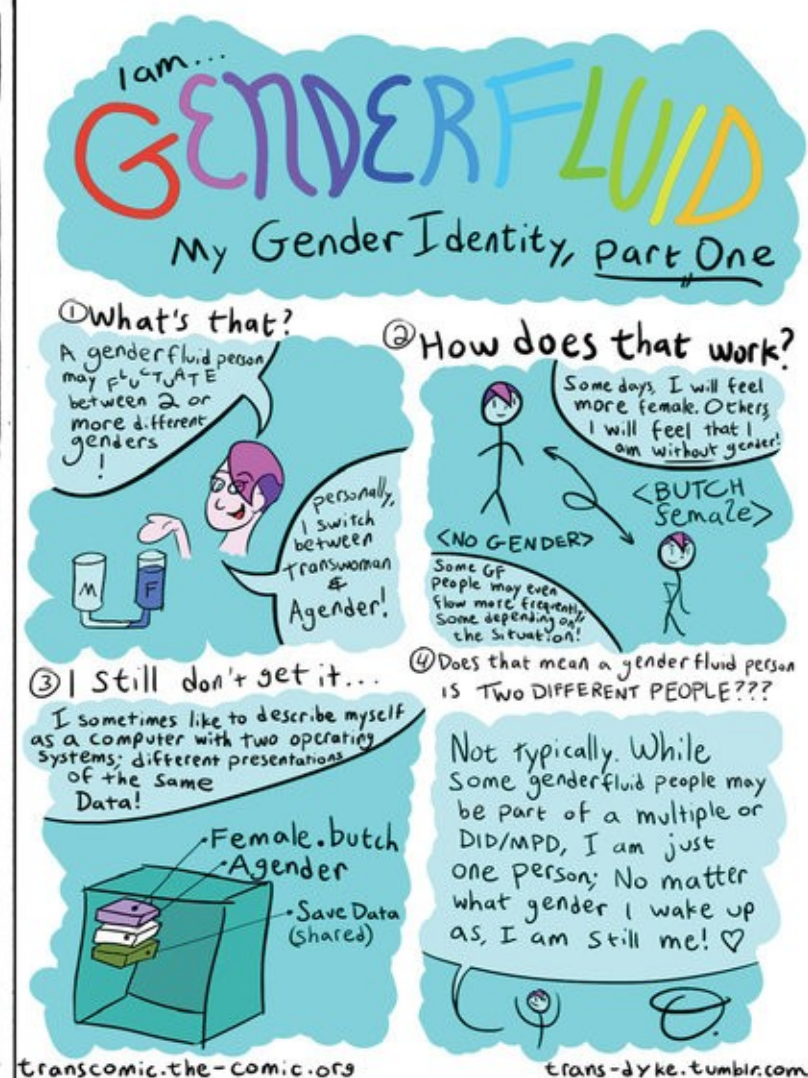 I am...
GENDERFLUID
My Gender Identity, Part One
① What's that?
A genderfluid person
may FLUCTUATE
between 2 or
more different
genders
!
personally,
I switch
between
Transwoman
&
Agender!
M
F
② How does that work?
Some days, I will feel
more female. Others,
I will feel that I
am without gender!
<NO GENDER>
<BUTCH
female>
Some GF
people may even
flow more frequently,
some depending on
the situation!
③ I still don't get it...
I sometimes like to describe myself
as a computer with two operating
systems; different presentations
of the same
Data!
Female.butch
Agender
Save Data
(shared)
④ Does that mean a genderfluid person
IS TWO DIFFERENT PEOPLE???
Not typically. While
some genderfluid people may
be part of a multiple or
DID/MPD, I am just
one person; No matter
what gender I wake up
as, I am still me! ♡
transcomic.the-comic.org
trans-dyke.tumblr.com